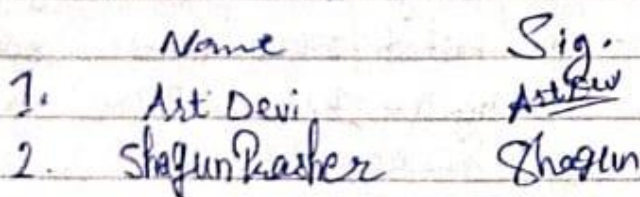 Name Sig.
1. Art Devi
2. Shagun Prasher Shagun